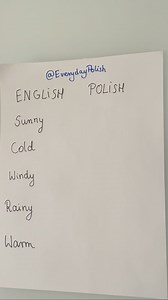 @EverydayPolish
ENGLISH POLISH
Sunny
Cold
Windy
Rainy
Warm